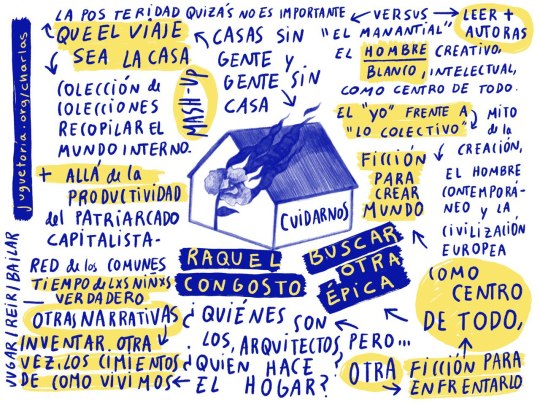 LA POSTERIDAD QUIZÁS NO ES IMPORTANTE
QUE EL VIAJE
SEA LA CASA
COLECCIÓN de
COLECCIONES
RECOPILAR EL
MUNDO INTERNO.
+ ALLÁ de la
PRODUCTIVIDAD
del PATRIARCADO
CAPITALISTA-
RED de los COMUNES
TIEMPO de LXS NIÑXS
VERDADERO
OTRAS NARRATIVAS
INVENTAR OTRA
VEZ, LOS CIMIENTOS
DE COMO VIVIMOS
juguetoria.org/charlas
JUGAR/REIR/BAILAR
MASH-UP
CASAS SIN
GENTE Y
GENTE SIN
CASA
CUIDARNOS
RAQUEL
CONGOSTO
BUSCAR
OTRA
ÉPICA
¿QUIÉNES SON
LOS, ARQUITECTOS PERO...
¿QUIEN HACE
EL HOGAR?
VERSUS
LEER +
AUTORAS
"EL MANANTIAL"
EL HOMBRE CREATIVO,
BLANCO, INTELECTUAL,
COMO CENTRO DE TODO.
EL "YO" FRENTE A
"LO COLECTIVO"
MITO
de la
CREACIÓN,
EL HOMBRE
CONTEMPORÁ-
NEO y LA
CIVILIZACIÓN
EUROPEA
FICCIÓN
PARA
CREAR
MUNDO
COMO
CENTRO
DE TODO,
OTRA
FICCIÓN PARA
ENFRENTARLO